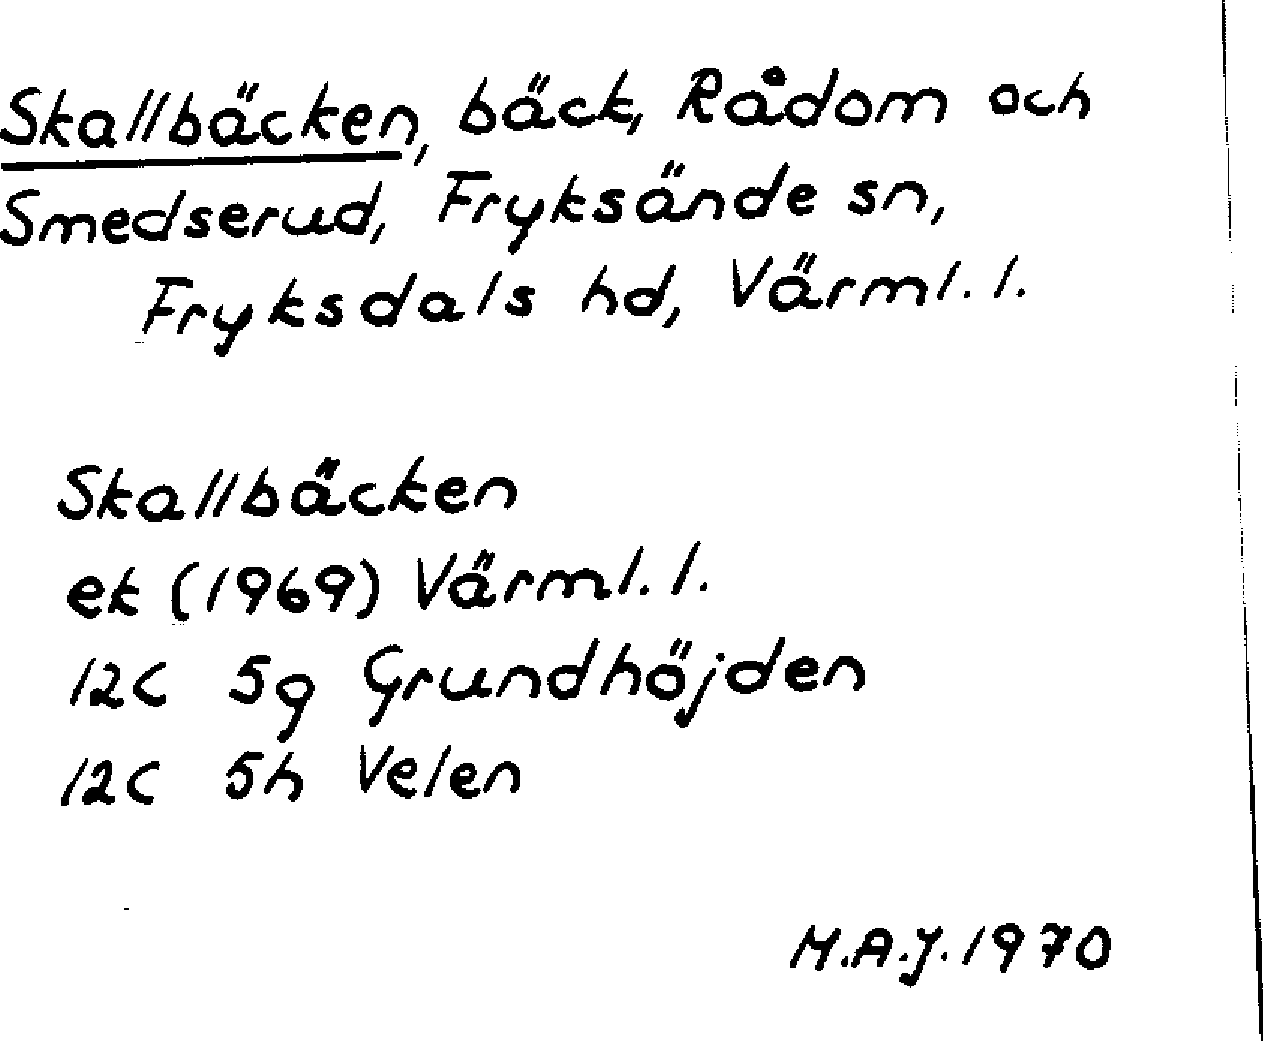 Skallbäcken, bäck, Rådom och
Smedserud, Fryksände sn,
Fryksdals hd, Värml. l.
Skallbäcken
ek (1969) Värml. l.
12C 5g Grundhöjden
12C 5h Velen
M.A.J. 1970